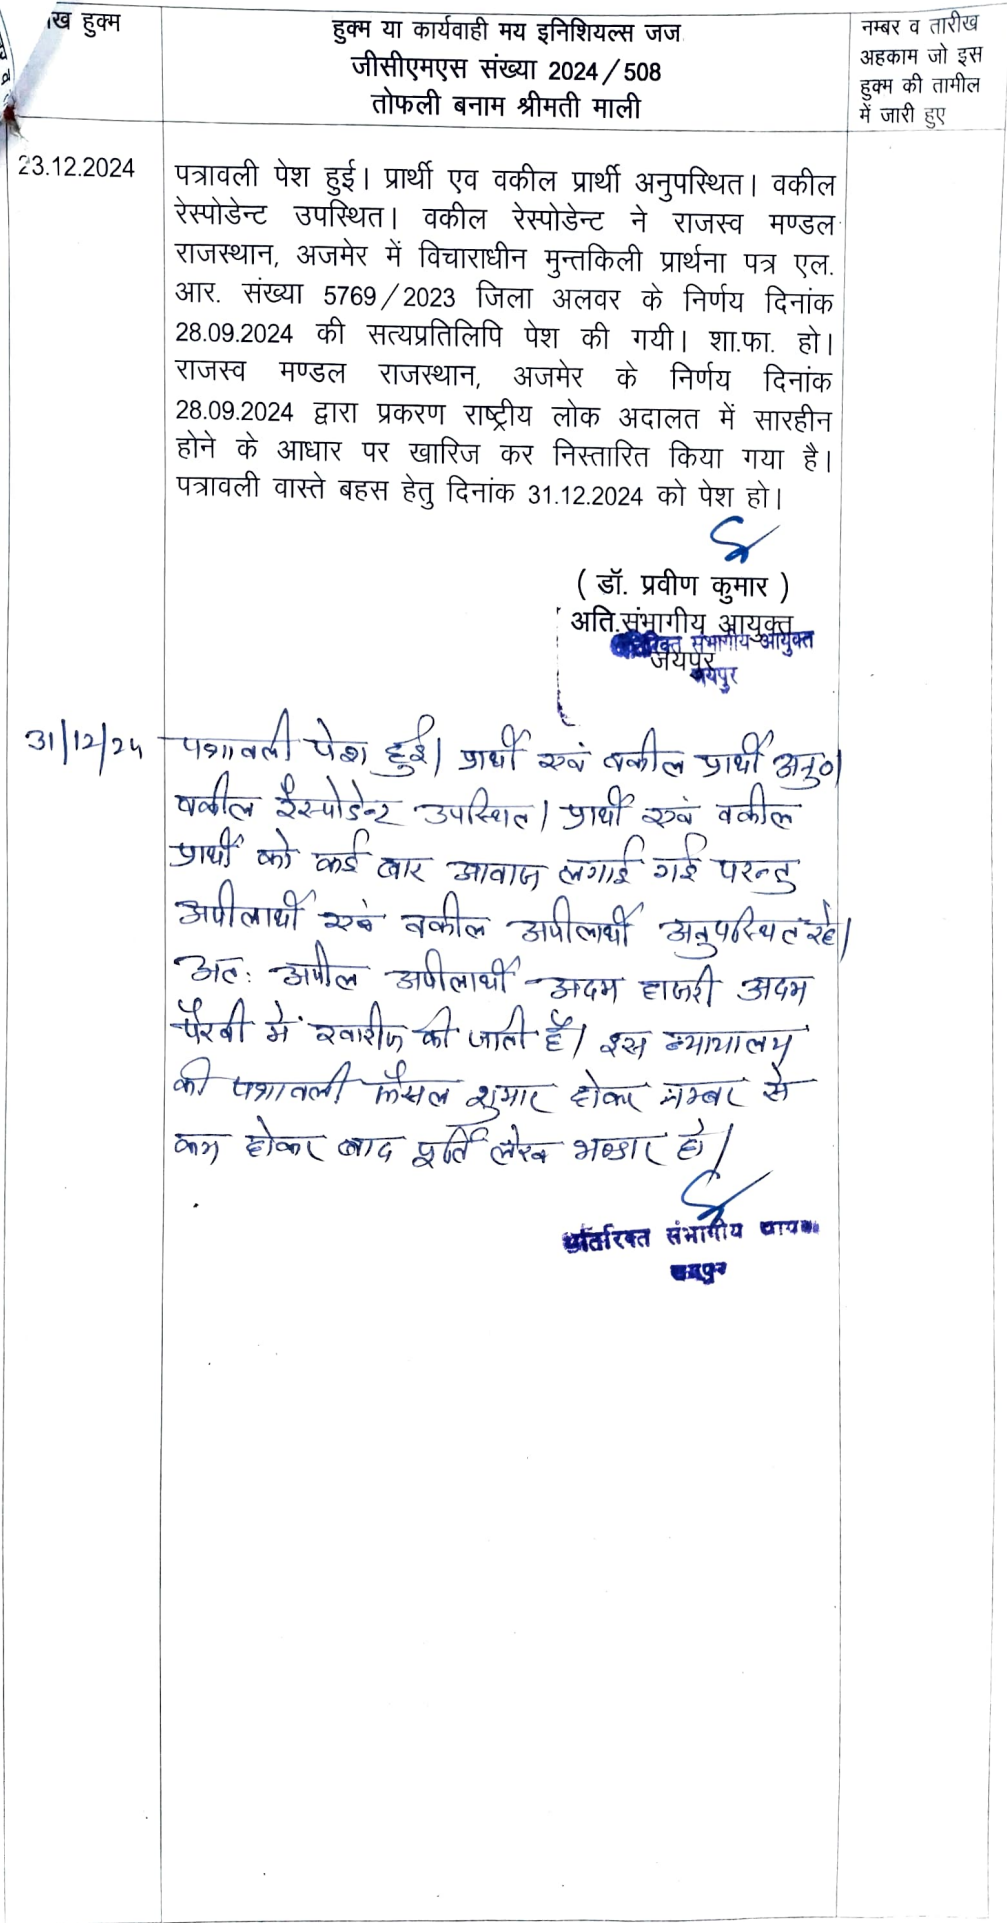 ख हुक्म
हुक्म या कार्यवाही मय इनिशियल्स जज
जीसीएमएस संख्या 2024/508
तोफली बनाम श्रीमती माली
नम्बर व तारीख
अहकाम जो इस
हुक्म की तामील
में जारी हुए
23.12.2024
पत्रावली पेश हुई। प्रार्थी एव वकील प्रार्थी अनुपस्थित। वकील
रेस्पोडेन्ट उपस्थित। वकील रेस्पोडेन्ट ने राजस्व मण्डल
राजस्थान, अजमेर में विचाराधीन मुन्तकिली प्रार्थना पत्र एल.
आर. संख्या 5769/2023 जिला अलवर के निर्णय दिनांक
28.09.2024 की सत्यप्रतिलिपि पेश की गयी। शा.फा. हो।
राजस्व मण्डल राजस्थान, अजमेर के निर्णय दिनांक
28.09.2024 द्वारा प्रकरण राष्ट्रीय लोक अदालत में सारहीन
होने के आधार पर खारिज कर निस्तारित किया गया है।
पत्रावली वास्ते बहस हेतु दिनांक 31.12.2024 को पेश हो।
( डॉ. प्रवीण कुमार )
अति.संभागीय आयुक्त
संभागीय आयुक्त
जयपुर
जयपुर
31/12/24
पत्रावली पेश हुई। प्रार्थी एवं वकील प्रार्थी अनु०।
वकील रैस्पोडेन्ट उपस्थित। प्रार्थी एवं वकील
प्रार्थी को कई बार आवाज लगाई गई परन्तु
अपीलार्थी एवं वकील अपीलार्थी अनुपस्थित रहे।
अतः अपील अपीलार्थी अदम हाजरी अदम
पैरवी में खारीज की जाती है। इस न्यायालय
की पत्रावली फैसल शुमार होकर नम्बर से
कम होकर बाद पूर्ति लेख भण्डार हो।
अतिरिक्त संभागीय